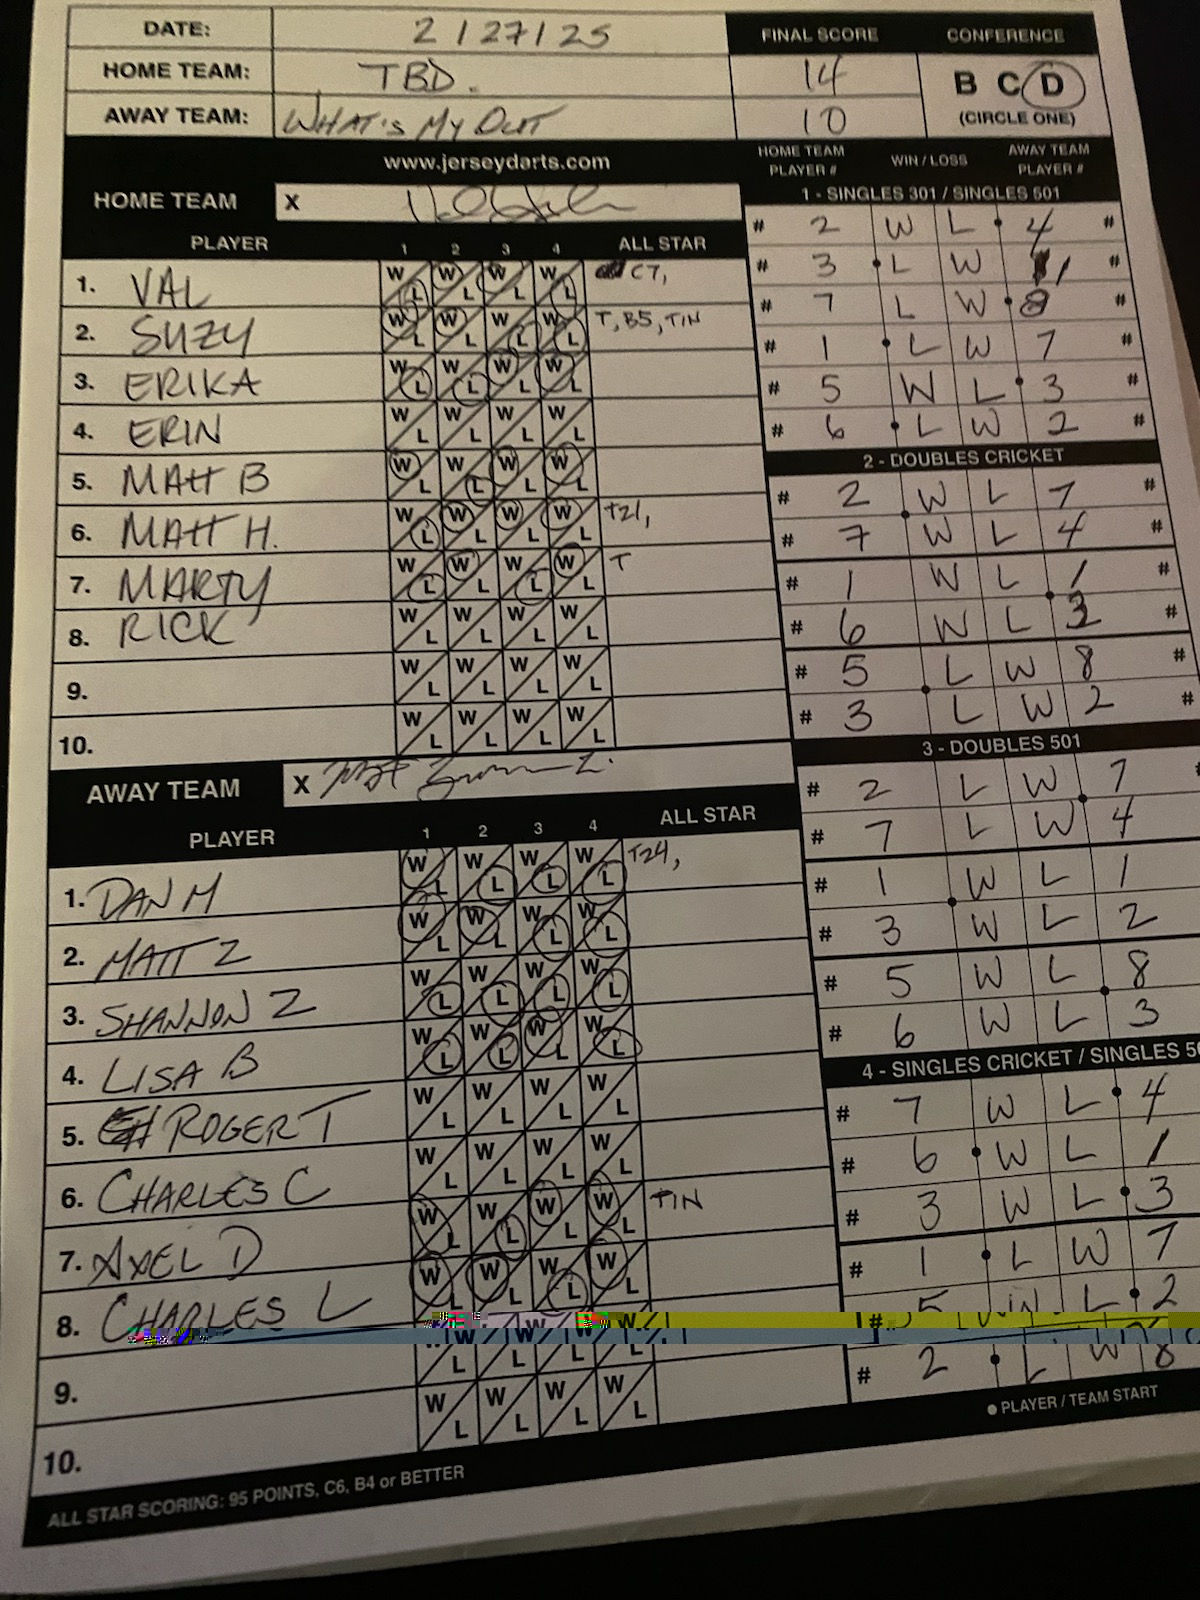 DATE: 2/27/25
HOME TEAM: TBD.
AWAY TEAM: WHAT'S MY OUT
FINAL SCORE
14
10
CONFERENCE
B C D
(CIRCLE ONE)
www.jerseydarts.com
HOME TEAM X
PLAYER 1 2 3 4 ALL STAR
1. VAL W L W L W L W L C7,
2. SUZY W L W L W L W L T, B5, TIN
3. ERIKA W L W L W L W L
4. ERIN W L W L W L W L
5. MATT B W L W L W L W L
6. MATT H. W L W L W L W L T21,
7. MARTY W L W L W L W L T
8. RICK W L W L W L W L
9. W L W L W L W L
10. W L W L W L W L
AWAY TEAM X
PLAYER 1 2 3 4 ALL STAR
1. DAN M W L W L W L W L T24,
2. MATT Z W L W L W L W L
3. SHANNON Z W L W L W L W L
4. LISA B W L W L W L W L
5. ROGER T W L W L W L W L
6. CHARLES C W L W L W L W L
7. AXEL D W L W L W L W L TIN
8. CHARLES L W L W L W L W L
9. W L W L W L W L
10. W L W L W L W L
ALL STAR SCORING: 95 POINTS, C6, B4 or BETTER
HOME TEAM PLAYER # WIN / LOSS AWAY TEAM PLAYER #
1 - SINGLES 301 / SINGLES 501
# 2 W L 4 #
# 3 L W 1 #
# 7 L W 8 #
# 1 L W 7 #
# 5 W L 3 #
# 6 L W 2 #
2 - DOUBLES CRICKET
# 2 W L 7 #
# 7 W L 4 #
# 1 W L 1 #
# 6 W L 3 #
# 5 L W 8 #
# 3 L W 2 #
3 - DOUBLES 501
# 2 L W 7
# 7 L W 4
# 1 W L 1
# 3 W L 2
# 5 W L 8
# 6 W L 3
4 - SINGLES CRICKET / SINGLES
# 7 W L 4
# 6 W L 1
# 3 W L 3
# 1 L W 7
# 5 W L 2
# 2 L W 8
● PLAYER / TEAM START